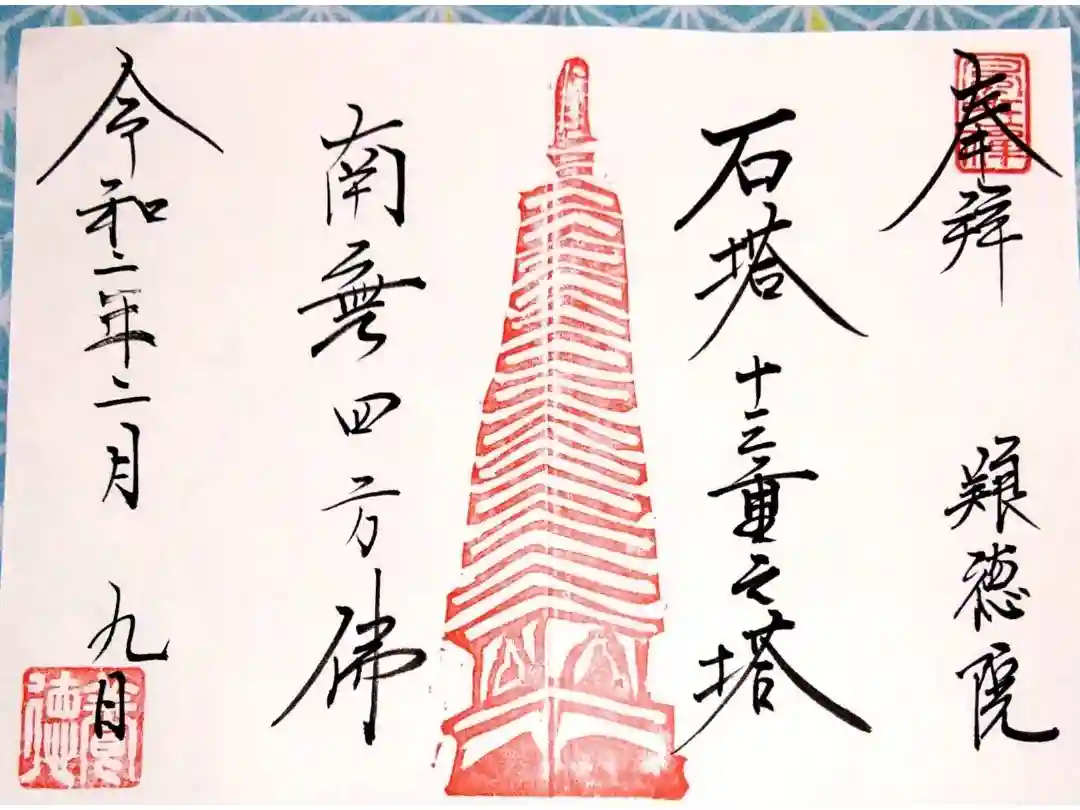 奉拜 艱徳院
石塔 十三重之塔
南無四方佛
令和二年二月 九日